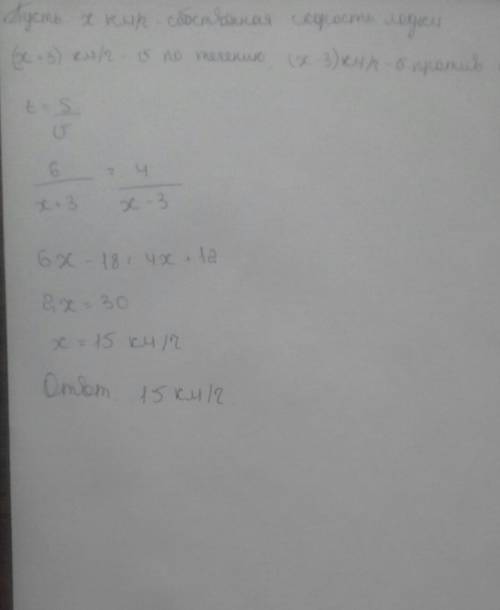 Пусть x км/ч - собственная скорость лодки
(x+3) км/ч - v по течению (x-3) км/ч - v против
t = S/v
6/(x+3) = 4/(x-3)
6x - 18 = 4x + 12
2x = 30
x = 15 км/ч
Ответ 15 км/ч